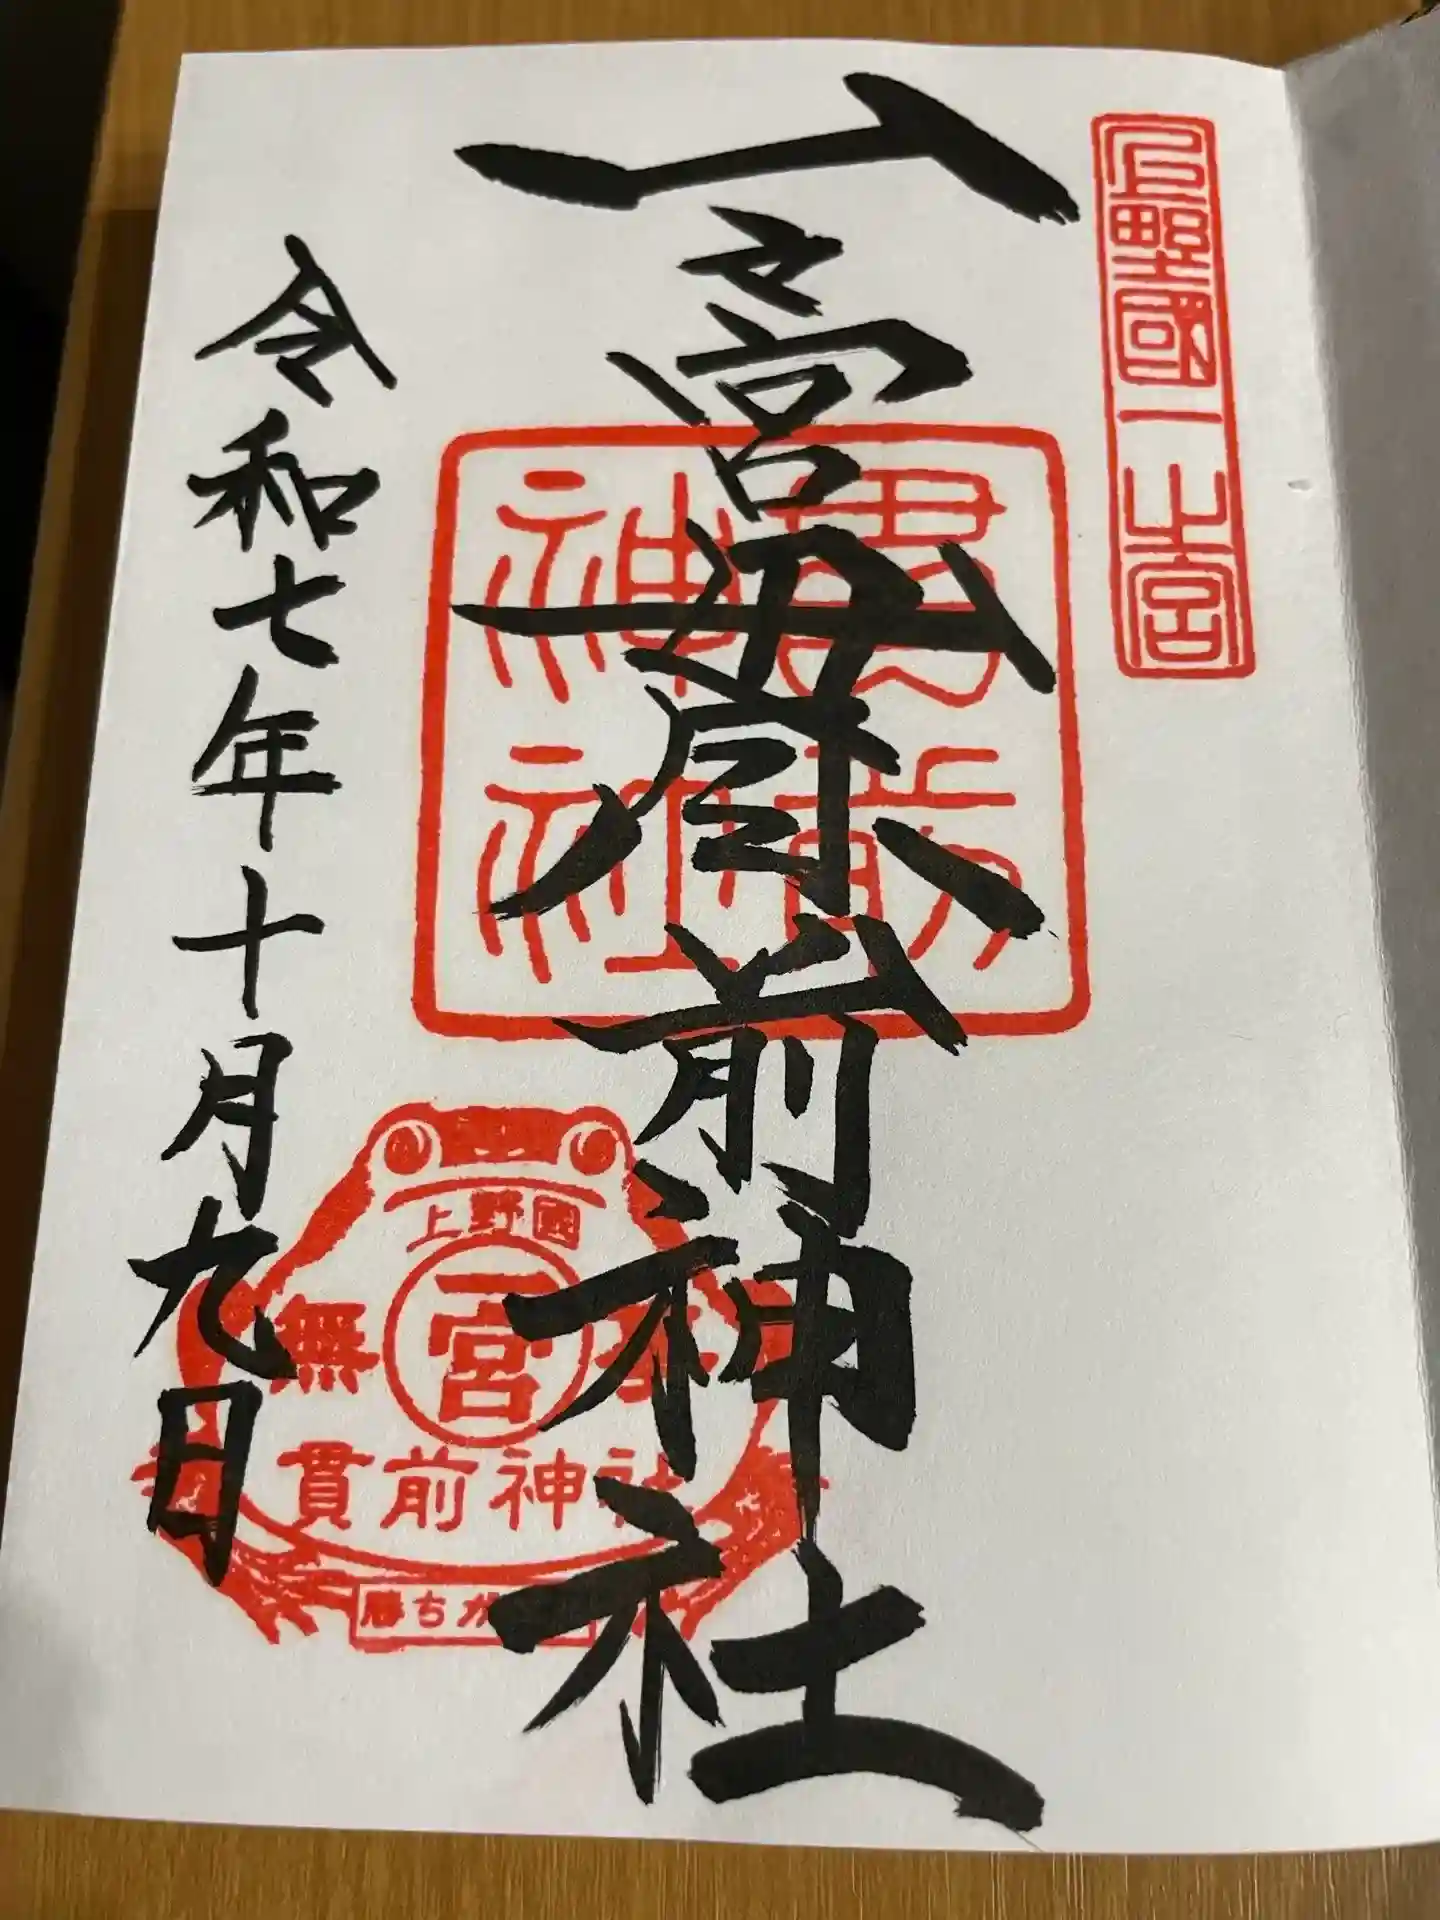 上野國一之宮
一之宮貫前神社
貫前
神社
令和七年十月九日
上野國
一宮
無
貫前神社
勝ちか